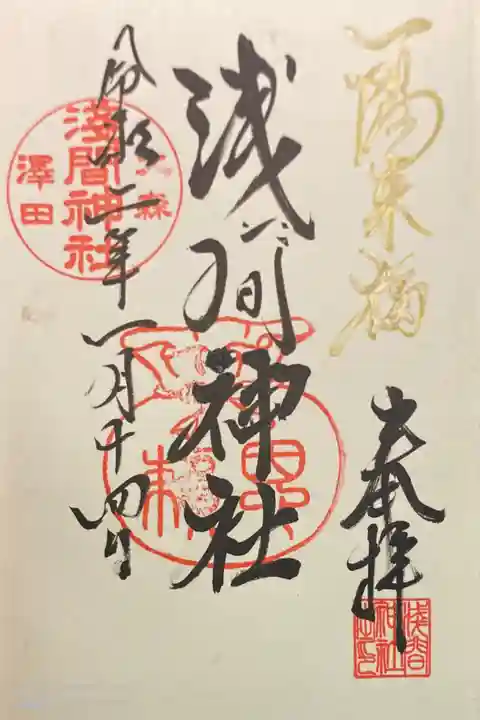 一陽来福
奉拝
浅间神社
令和二年一月十四日
大森
浅間神社
澤田
浅間
神社
之印